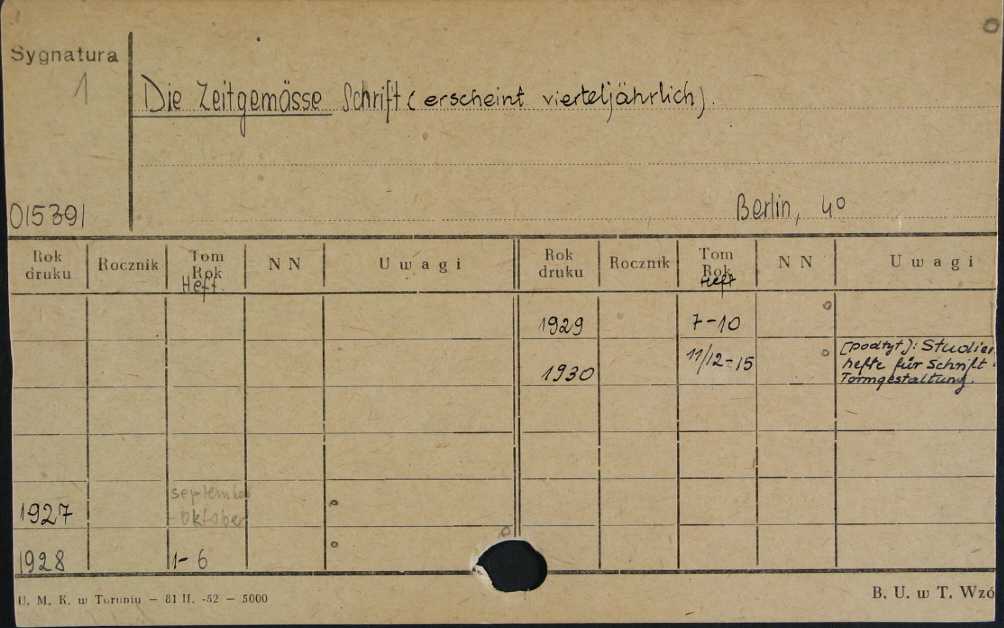 Sygnatura
1
Die Zeitgemässe Schrift (erscheint vierteljährlich).
015391
Berlin, 4º
Rok druku Rocznik Tom Rok Heft. NN Uwagi Rok druku Rocznik Tom Rok Heft NN Uwagi
1929 7-10
1930 11/12-15 (podtyt): Studien
hefte für Schrift
Formgestaltung.
1927 september
-Oktober
1928 1-6
U. M. K. w Toruniu — 81 II. -52 — 5000
B. U. w T. Wzó